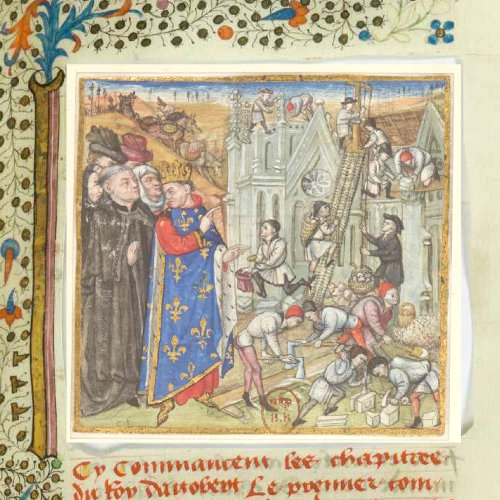 Cy Commancent les chapitres
du Roy dagobert Le premier com